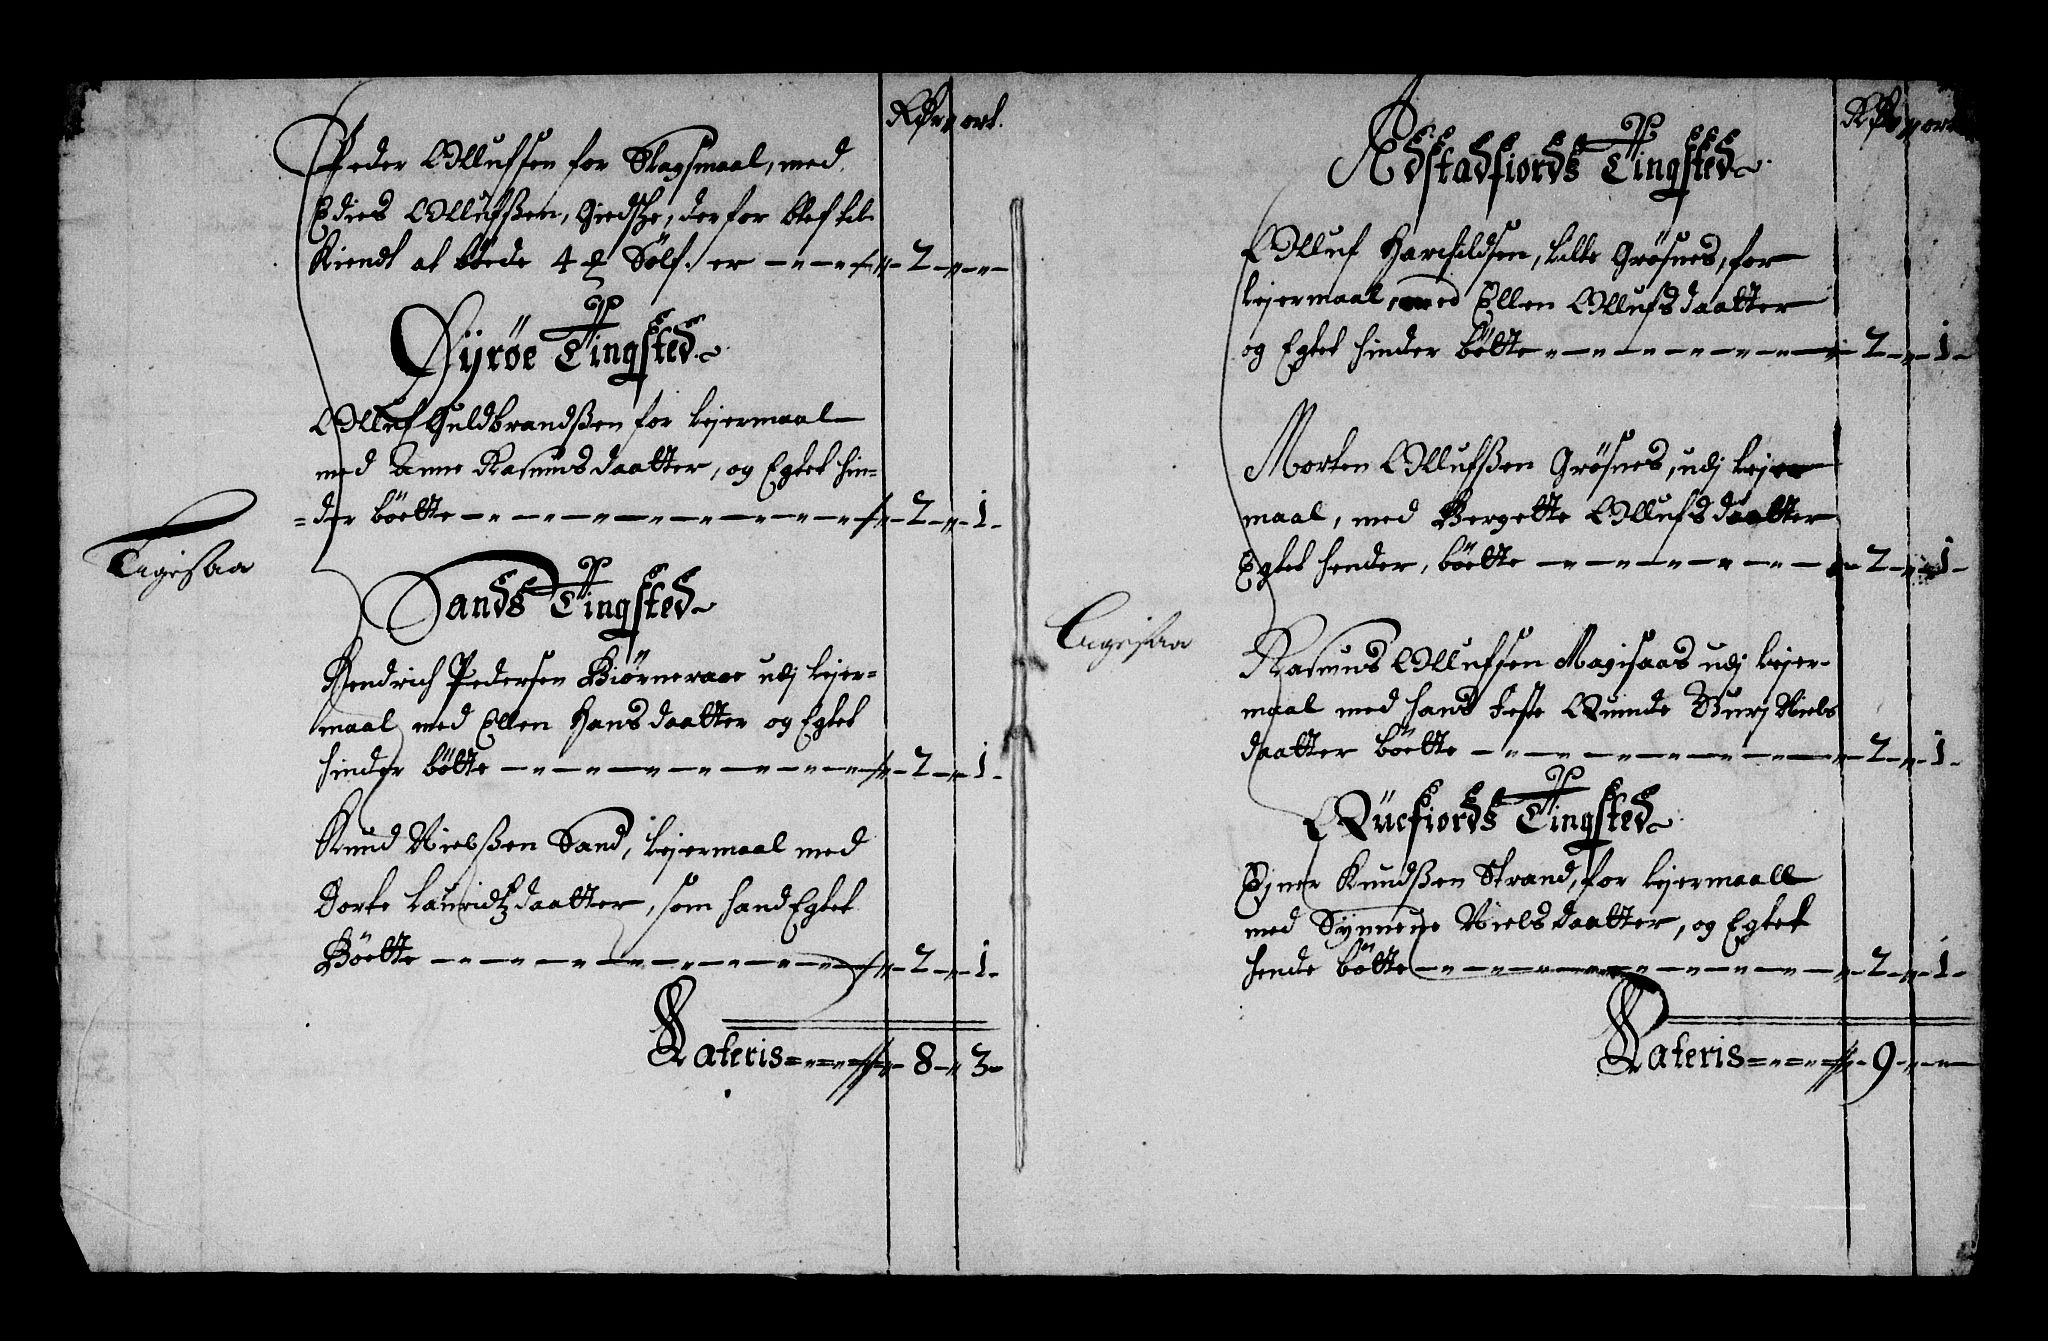 Rdr ort.
Peder Ollufsen for Slagsmaal, med
Olluf​ßen, der for blef til
Kiendt at böede 4 Sölf. er - 2 -
Öyröe Tingsted
Olluf Guldbrandßen for leyermaal
med Anne Rasmusdaatter, og Egtet hin-
=der böette - 2 - 1 -
Tagesaa
Sands Tingsted
Hendrich Pedersen udj leyer-
maal med Ellen Hansdaatter og Egtet
hinder bötte - 2 - 1 -
Knud Nielsßen Sand, leyermaal med
Dorte Lauridtzdaatter, som hand Egtet
Böette - 2 - 1 -
Lateris - 8 - 3 -
Rdr ort
Adstadfiords Tingsted
Olluf lille Grösnes, for
leyermaal, med Ellen Ollufsdaatter
og Egtet hinder bötte - 2 - 1 -
Morten Ollufßen Grösnes, udj leyer
maal, med Bergette Ollufsdaatter
Egtet hender, böette - 2 - 1 -
Tagesaa
Rasmus Ollufsen udj leyer-
maal med hans feste Quinde Niels
daatter böette - 2 - 1 -
Qücfiords Tingsted
Ejner Knudßen Strand, for leyermaall
med Synneue Nielsdaatter, og Egtet
hende bötte - 2 - 1 -
Lateris - 9 -